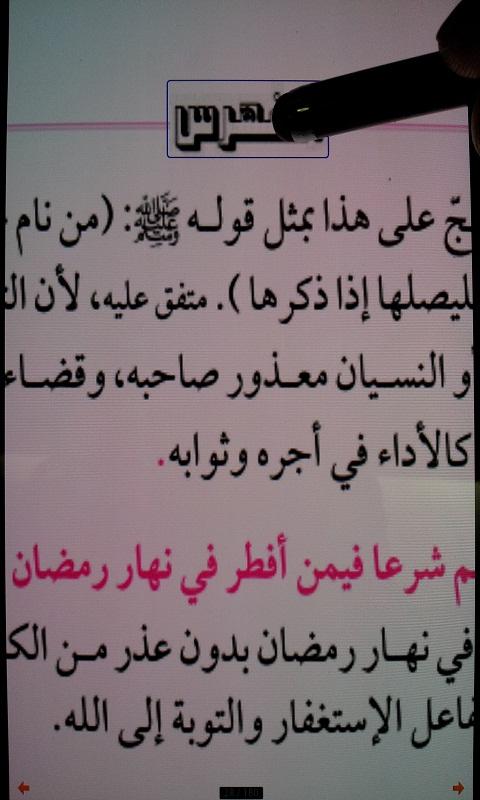 على هذا بمثل قولـه ﷺ: (من نام
ليصلها إذا ذكرها ). متفق عليه، لأن
و النسـيان معـذور صاحبه، وقضـاء
كالأداء في أجره وثوابه.
شرعا فيمن أفطر في نهار رمضان
في نهـار رمضان بدون عذر مـن
الإستغفار والتوبة إلى الله.